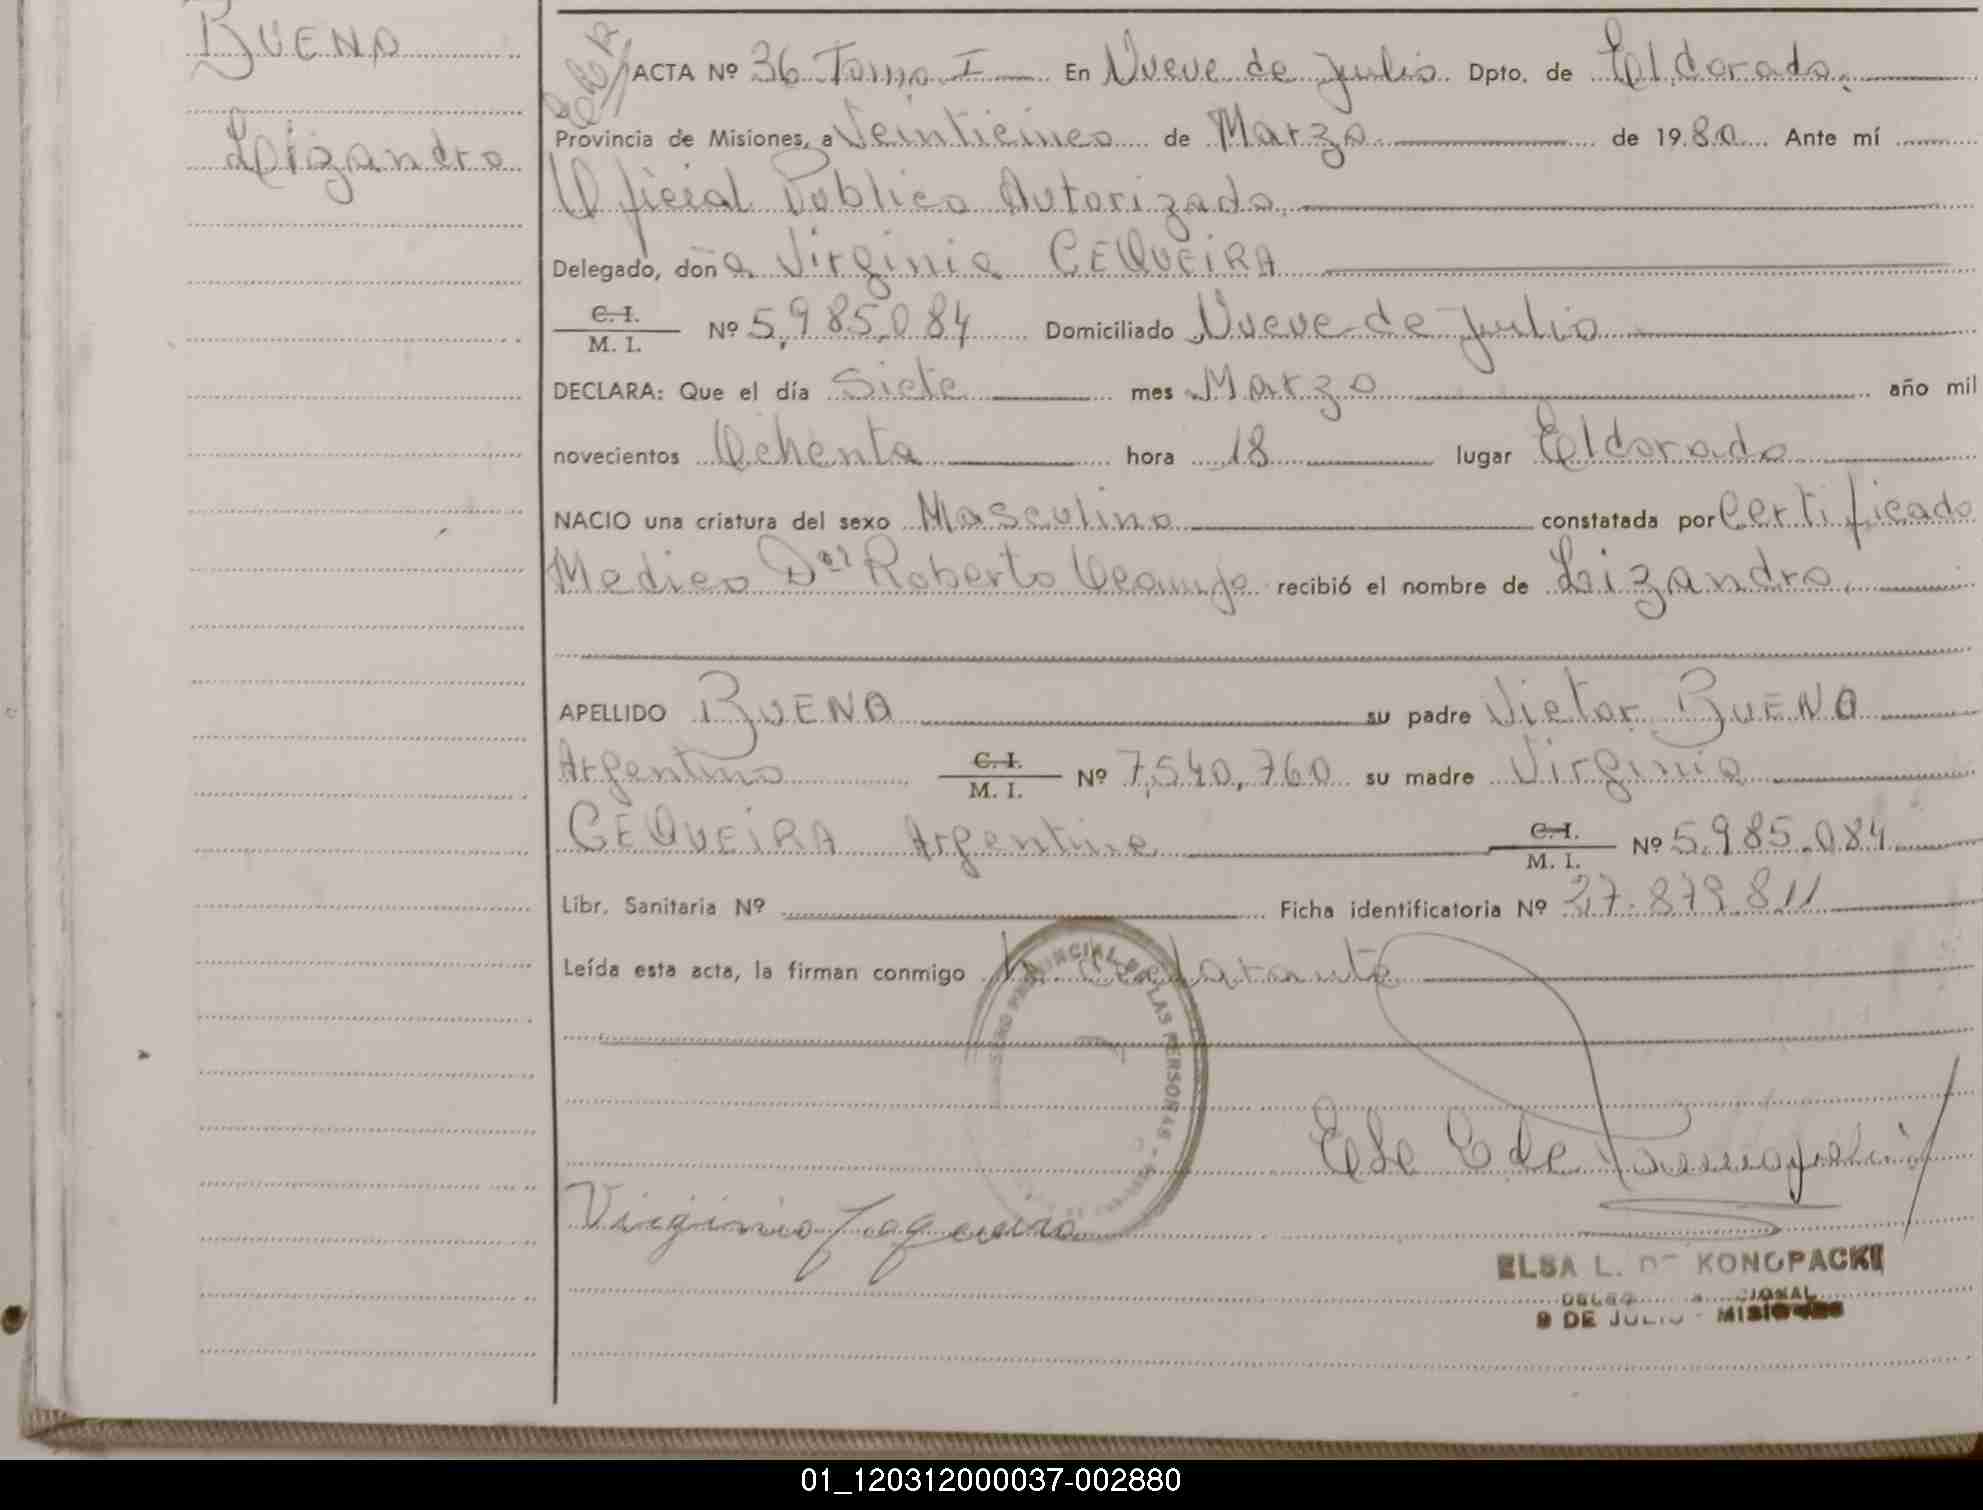 BUENO
Lizandro
ACTA Nº 36 Tomo I En Nueve de Julio Dpto. de Eldorado.
Provincia de Misiones, a Veinticinco de Marzo de 1980 Ante mí
Oficial Publico Autorizado.
Delegado, doña Virginia CEQUEIRA
C. I.
M. I. Nº 5,985,084 Domiciliado Nueve de Julio
DECLARA: Que el día Siete mes Marzo año mil
novecientos Ochenta hora 18 lugar Eldorado
NACIO una criatura del sexo Masculino constatada por Certificado
Medico Dor Roberto Ocampo recibió el nombre de Lizandro.
APELLIDO BUENO su padre Victor BUENO
Argentino C. I. M. I. Nº 7,540,760 su madre Virginia
CEQUEIRA Argentina C. I. M. I. Nº 5.985.084
Libr. Sanitaria Nº Ficha identificatoria Nº 27.879.811
Leída esta acta, la firman conmigo la declarante
PROVINCIAL DE LAS PERSONAS
Virginia
ELSA L. DE KONOPACKI
9 DE JULIO - MISIONES
01_120312000037-002880